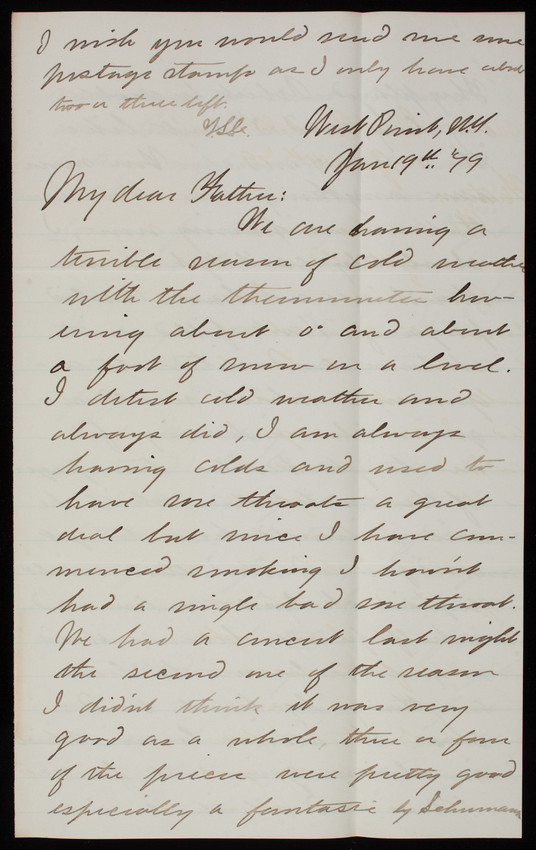 I wish you would send me some
postage stamps as I only have about
two or three left.
West Point, N.Y.
Jan. 19th '79
My dear Father:
We are having a
terrible season of cold weather
with the thermometer hov-
ering about 0° and about
a foot of snow on a level.
I detest cold weather and
always did, I am always
having colds and used to
have sore throats a great
deal but since I have com-
menced smoking I hav'nt
had a single bad sore throat.
We had a concert last night
the second one of the season
I did'nt think it was very
good as a whole, three or four
of the pieces were pretty good
especially a fantasie by Schumann